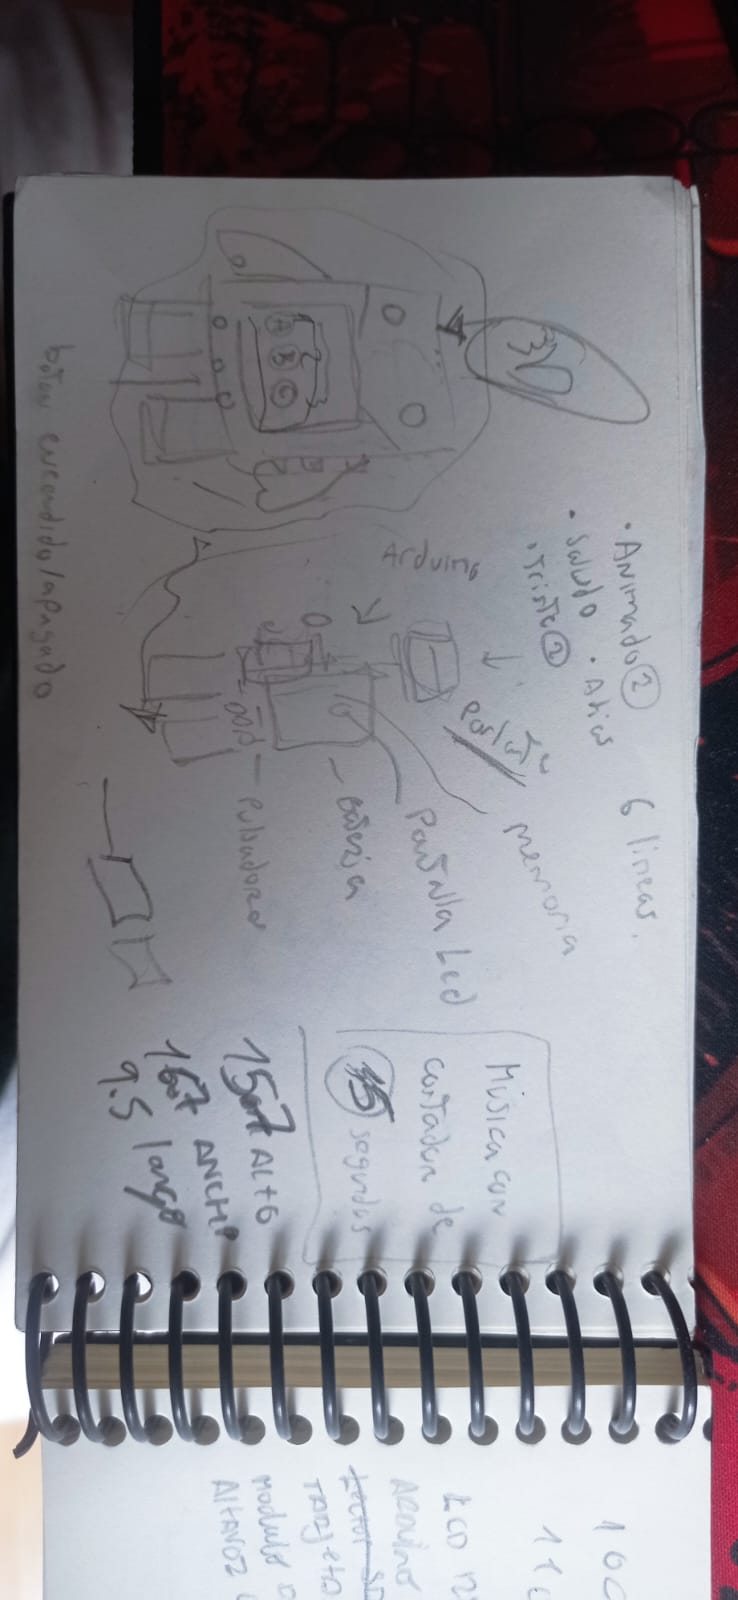 • Animado ②
6 lineas.
• Saludo • Adios
• Triste ②
3D
Arduino
Parlante
memoria
Pantalla Led
Bateria
Pulsadores
A B C
Musica con
contador de
15 segundos
ALTO
ANCHO
9.5 largo
boton encendido/apagado
100
LCD
Arduino
Lector SD
Tarjeta
Modulo
Altavoz